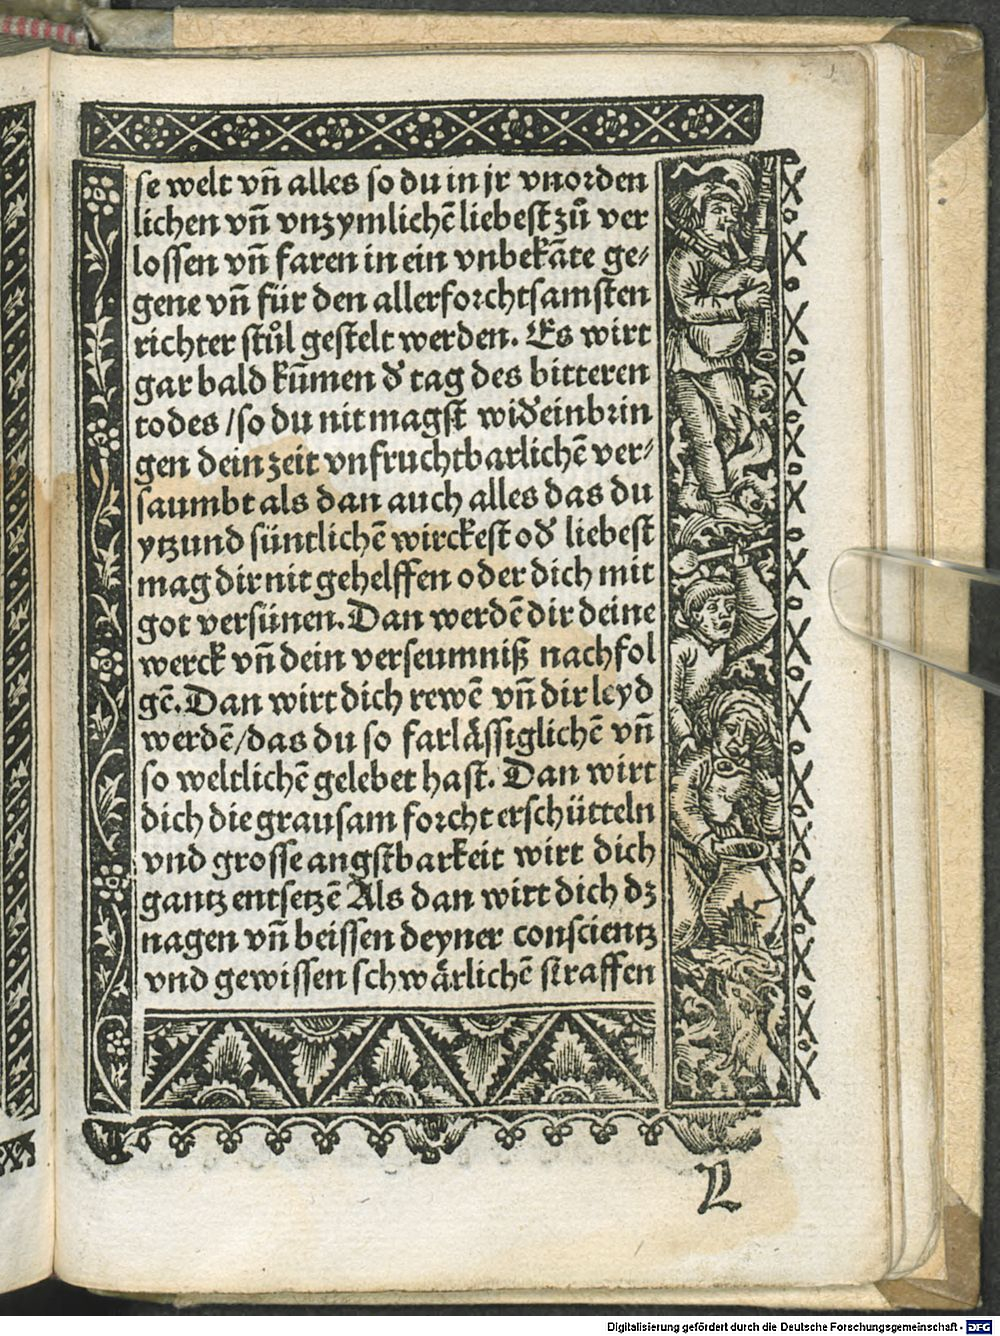 se welt vñ alles so du in jr vnorden
lichen vñ vnzymlichē liebest zů ver
lossen vñ faren in ein vnbekāte ge⸗
gene vñ für den allerforchtsamsten
richter stůl gestelt werden. Es wirt
gar bald kūmen dʼ tag des bitteren
todes /so du nit magst widʼeinbrin
gen dein zeit vnfruchtbarlichē ver⸗
saumbt als dan auch alles das du
ytzund süntlichē wirckest odʼ liebest
mag dir nit gehelffen oder dich mit
got versünen. Dan werdē dir deine
werck vñ dein verseumniß nachfol
gē. Dan wirt dich rewē vñ dir leyd
werdē/das du so farlässiglichē vñ
so weltlichē gelebet hast. Dan wirt
dich die grausam forcht erschütteln
vnd grosse angstbarkeit wirt dich
gantz entsetzē Als dan wirt dich dz
nagen vñ beissen deyner conscientz
vnd gewissen schwärlichē straffen
L
Digitalisierung gefördert durch die Deutsche Forschungsgemeinschaft - DFG